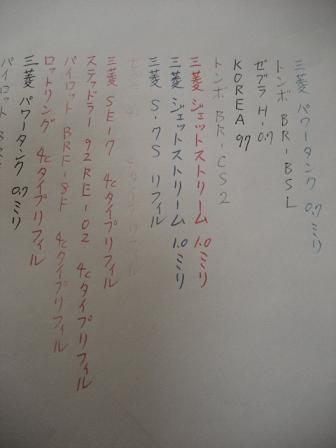 三菱 パワータンク 0.7ミリ
トンボ BR-BSL
ゼブラ H-0.7
KOREA 97
トンボ BR-CS2
三菱 ジェットストリーム 1.0ミリ
三菱 ジェットストリーム 1.0ミリ
三菱 S-7S リフィル
ゼブラ 4cタイプリフィル
三菱 SE-7 4cタイプリフィル
ステッドラー 92RE-02 4cタイプリフィル
パイロット BRF-8F 4cタイプリフィル
ロットリング 4cタイプリフィル
三菱 パワータンク 0.7ミリ
パイロット